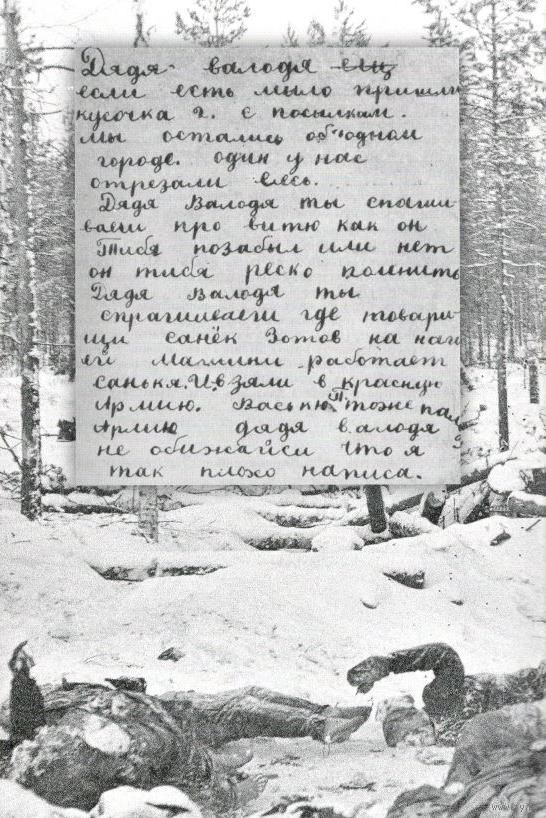 Дядя валодя ещ
если есть мыло пришли
кусочка 2. с посылкам.
мы остались об одном
городе. один у нас
отрезали весь.
Дядя Валодя ты спаши
ваеш про витю как он
Тибя позабыл или нет
он тибя реско помнить
Дядя Валодя ты
спрашиваеш где товари-
щи санёк Зотов на наш
ей Машини работает
санькя. И взяли в красную
Армию. Васькю П. тоже
Армию дядя валодя
не обижайси что я
так плохо написа.